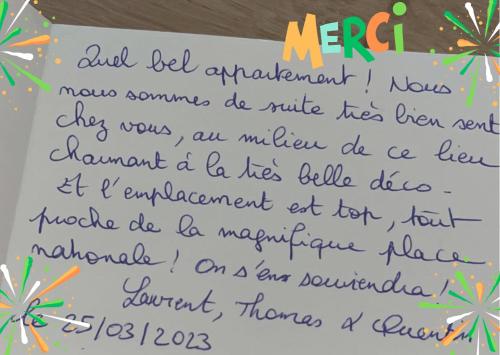 MERCI
Quel bel appartement ! Nous
nous sommes de suite très bien sent
chez vous, au milieu de ce lieu
charmant à la très belle déco -
Et l'emplacement est top, tout
proche de la magnifique place
nationale ! On s'en souviendra !
Laurent, Thomas & Quentin
le 25/03/2023